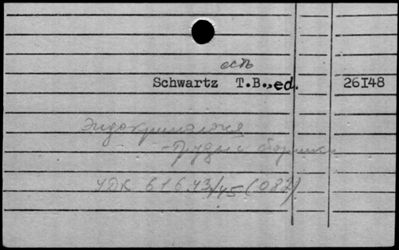 есть
Schwartz T.B., ed. 26I48
Эндокринология
- Труды сборники
УДК 616.43/45(082)